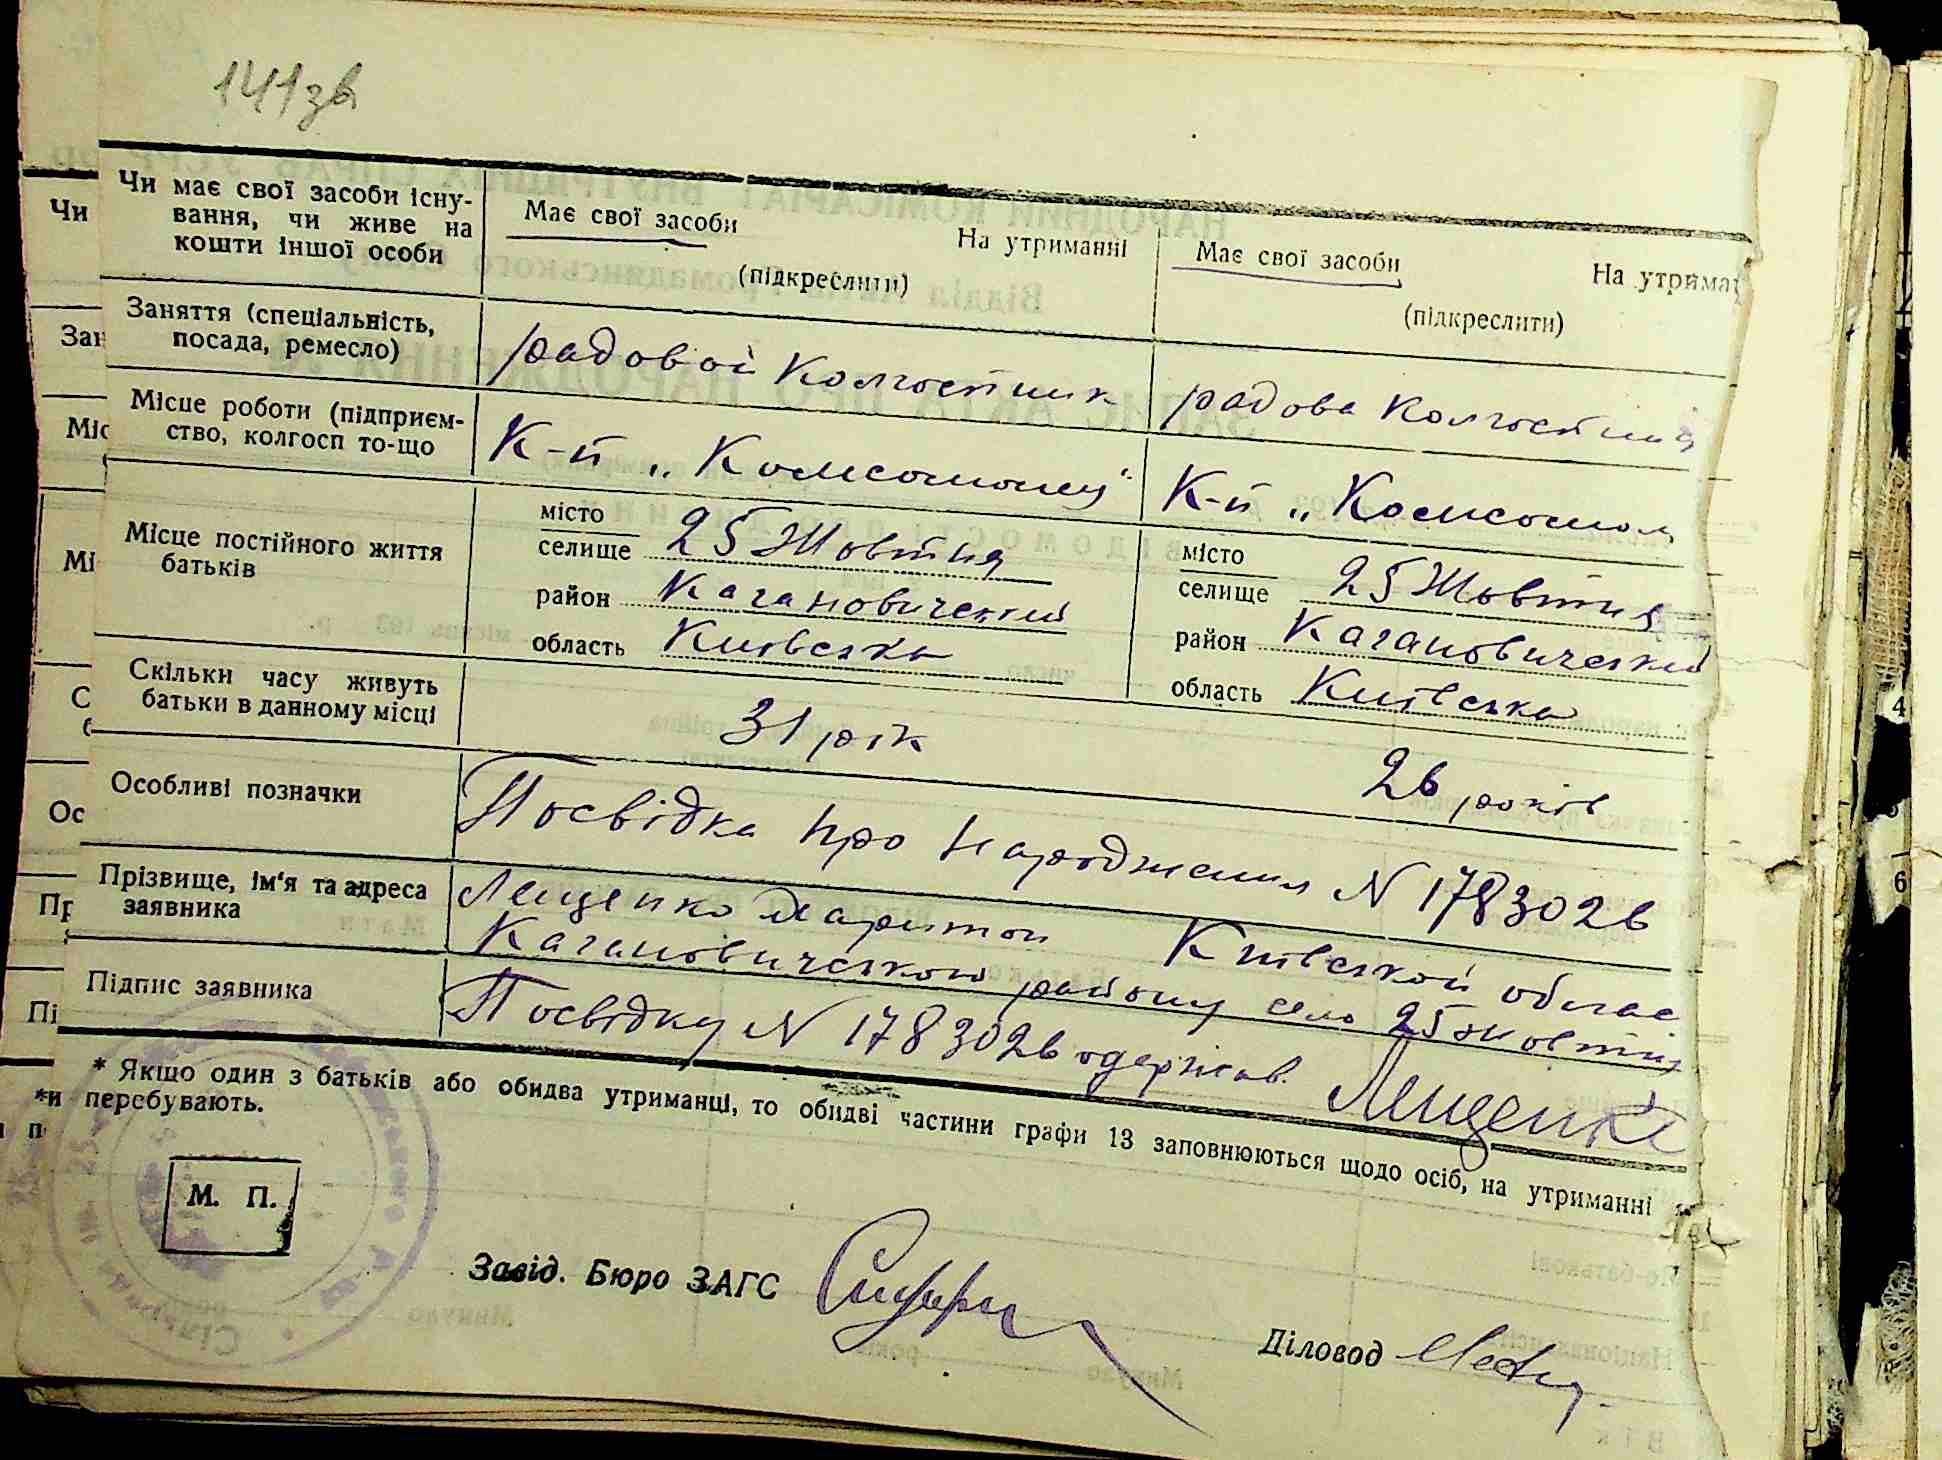 141зв
Чи має свої засоби існу-
вання, чи живе на
кошти іншої особи
Має свої засоби На утриманні
(підкреслити)
Має свої засоби На утриман
(підкреслити)
Заняття (спеціальність,
посада, ремесло)
радовой Колгоспник
радова Колгоспниця
Місце роботи (підприєм-
ство, колгосп то-що
К-п „Комсомолец"
К-п „Комсомол
Місце постійного життя
батьків
місто
селище 25 Жовтня
район Кагановический
область Киівська
місто
селище 25 Жовтня
район Кагановический
область Киівська
Скільки часу живуть
батьки в данному місці
31 рік
26 років
Особливі позначки
Посвідка про Народження N 1783026
Прізвище, ім'я та адреса
заявника
Лещенко Харитон Киівской облас
Кагановичского району село 25 Жовтня
Підпис заявника
Посвідку N 1783026 одержав. Лещенко
* Якщо один з батьків або обидва утриманці, то обидві частини графи 13 заповнюються щодо осіб, на утриманні
перебувають.
М. П.
Завід. Бюро ЗАГС
Діловод
Чи
Зан
Міс
Мі
С
б
Ос
Пр
Пі
*и
п
4
6